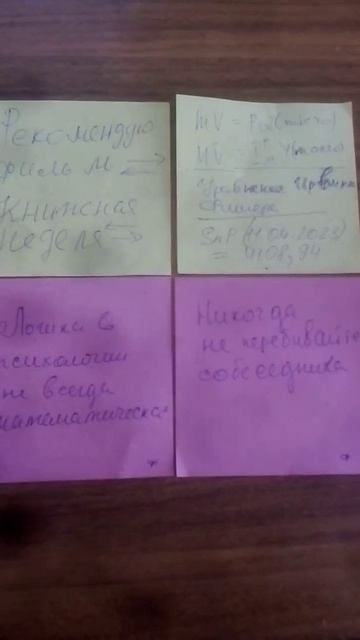 Рекомендую
фильм
Книжная
неделя
MV = PQ (micro)
MV = Y (macro)
Уравнения
Фишера
SnP (11.04.2023)
= 4108,94
Логика в
психологии
не всегда
математическая
Никогда
не перебивайте
собеседника